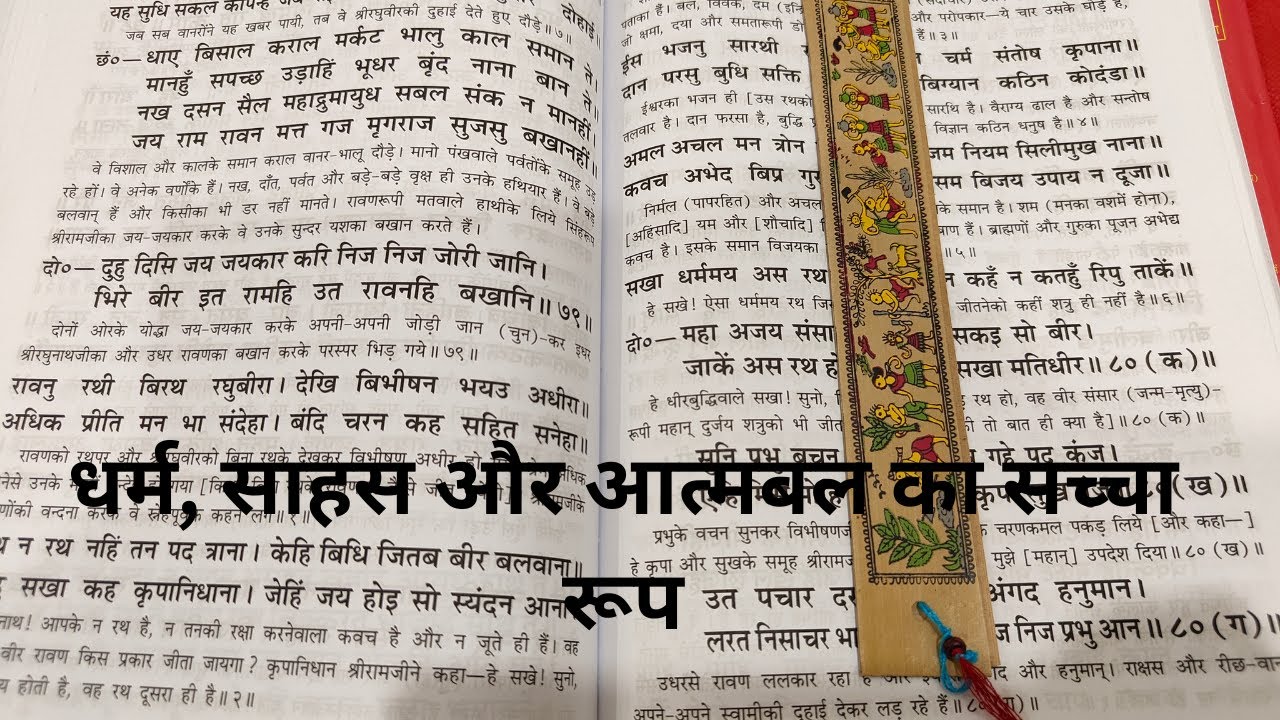 यह सुधि सकल
जब सब वानरोंने यह खबर पायी, तब वे श्रीरघुवीरकी दुहाई देते हुए दौड़े॥७॥
छं०— धाए बिसाल कराल मर्कट भालु काल समान ते।
मानहुँ सपच्छ उड़ाहिं भूधर बृंद नाना बान ते॥
नख दसन सैल महाद्रुमायुध सबल संक न मानहीं।
जय राम रावन मत्त गज मृगराज सुजसु बखानहीं॥
वे विशाल और कालके समान कराल वानर-भालू दौड़े। मानो पंखवाले पर्वतोंके समूह उड़
रहे हों। वे अनेक वर्णोंके हैं। नख, दाँत, पर्वत और बड़े-बड़े वृक्ष ही उनके हथियार हैं। वे बड़े
बलवान् हैं और किसीका भी डर नहीं मानते। रावणरूपी मतवाले हाथीके लिये सिंहरूप
श्रीरामजीका जय-जयकार करके वे उनके सुन्दर यशका बखान करते हैं।
दो०— दुहु दिसि जय जयकार करि निज निज जोरी जानि।
भिरे बीर इत रामहि उत रावनहि बखानि॥ ७९॥
दोनों ओरके योद्धा जय-जयकार करके अपनी-अपनी जोड़ी जान (चुन)-कर इधर
श्रीरघुनाथजीका और उधर रावणका बखान करके परस्पर भिड़ गये॥ ७९॥
रावनु रथी बिरथ रघुबीरा। देखि बिभीषन भयउ अधीरा॥
अधिक प्रीति मन भा संदेहा। बंदि चरन कह सहित सनेहा॥
रावणको रथपर और श्रीरघुवीरको बिना रथके देखकर विभीषण अधीर हो
न रथ नहिं तन पद त्राना। केहि बिधि जितब बीर बलवाना॥
सखा कह कृपानिधाना। जेहिं जय होइ सो स्यंदन आना॥
आपके न रथ है, न तनकी रक्षा करनेवाला कवच है और न जूते ही हैं। वह
वीर रावण किस प्रकार जीता जायगा? कृपानिधान श्रीरामजीने कहा—हे सखे! सुनो,
होती है, वह रथ दूसरा ही है॥२॥
जो क्षमा, दया और समतारूपी
और परोपकार—ये चार उसके घोड़े हैं,
हैं॥३॥
ईस भजनु सारथी चर्म संतोष कृपाना॥
दान परसु बुधि सक्ति बिग्यान कठिन कोदंडा॥
ईश्वरका भजन ही [उस रथका सारथि है। वैराग्य ढाल है और सन्तोष
तलवार है। दान फरसा है, बुद्धि विज्ञान कठिन धनुष है॥४॥
अमल अचल मन त्रोन जम नियम सिलीमुख नाना॥
कवच अभेद बिप्र सम बिजय उपाय न दूजा॥
निर्मल (पापरहित) और अचल के समान है। शम (मनका वशमें होना),
[अहिंसादि] यम और [शौचादि] बाण हैं। ब्राह्मणों और गुरुका पूजन अभेद्य
कवच है। इसके समान विजयका है॥५॥
सखा धर्ममय अस रथ कहँ न कतहुँ रिपु ताकें॥
हे सखे! ऐसा धर्ममय रथ जीतनेको कहीं शत्रु ही नहीं है॥६॥
दो०— महा अजय सकइ सो बीर।
जाकें अस रथ सखा मतिधीर॥ ८० (क)॥
हे धीरबुद्धिवाले सखा! सुनो, रथ हो, वह वीर संसार (जन्म-मृत्यु)-
रूपी महान् दुर्जय शत्रुको भी जीत की तो बात ही क्या है]॥८० (क)॥
सुनि प्रभु बचन गहे पद कंज।
८० (ख)॥
प्रभुके वचन सुनकर विभीषणजी चरणकमल पकड़ लिये [और कहा—]
हे कृपा और सुखके समूह श्रीरामजी मुझे [महान्] उपदेश दिया॥८० (ख)॥
उत पचार अंगद हनुमान।
लरत निसाचर निज प्रभु आन॥ ८० (ग)॥
उधरसे रावण ललकार रहा है और हनुमान्। राक्षस और रीछ-वानर
अपने-अपने स्वामीकी दुहाई देकर लड़ रहे हैं॥
धर्म, साहस और आत्मबल का सच्चा
रूप